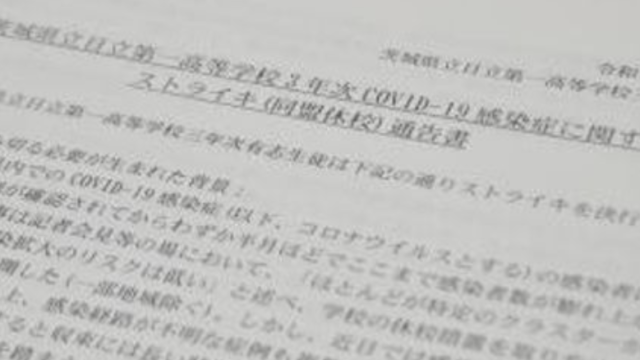 令和
茨城県立日立第一高等学校
茨城県立日立第一高等学校3年次 COVID-19 感染症に関す
ストライキ(同盟休校)通告書
立日立第一高等学校三年次有志生徒は下記の通りストライキを決行
切る必要が生まれた背景:
内での COVID-19 感染症(以下、コロナウイルスとする)の感染者
が確認されてからわずか半月ほどでここまで感染者数が膨れ上
は記者会見等の場において、「ほとんどが特定のクラスター
染拡大のリスクは低い」と述べ、学校の休校措置を
開した(一部地域除く)。しかし、近日では
上、感染経路が不明な症例も
ると収束には長い